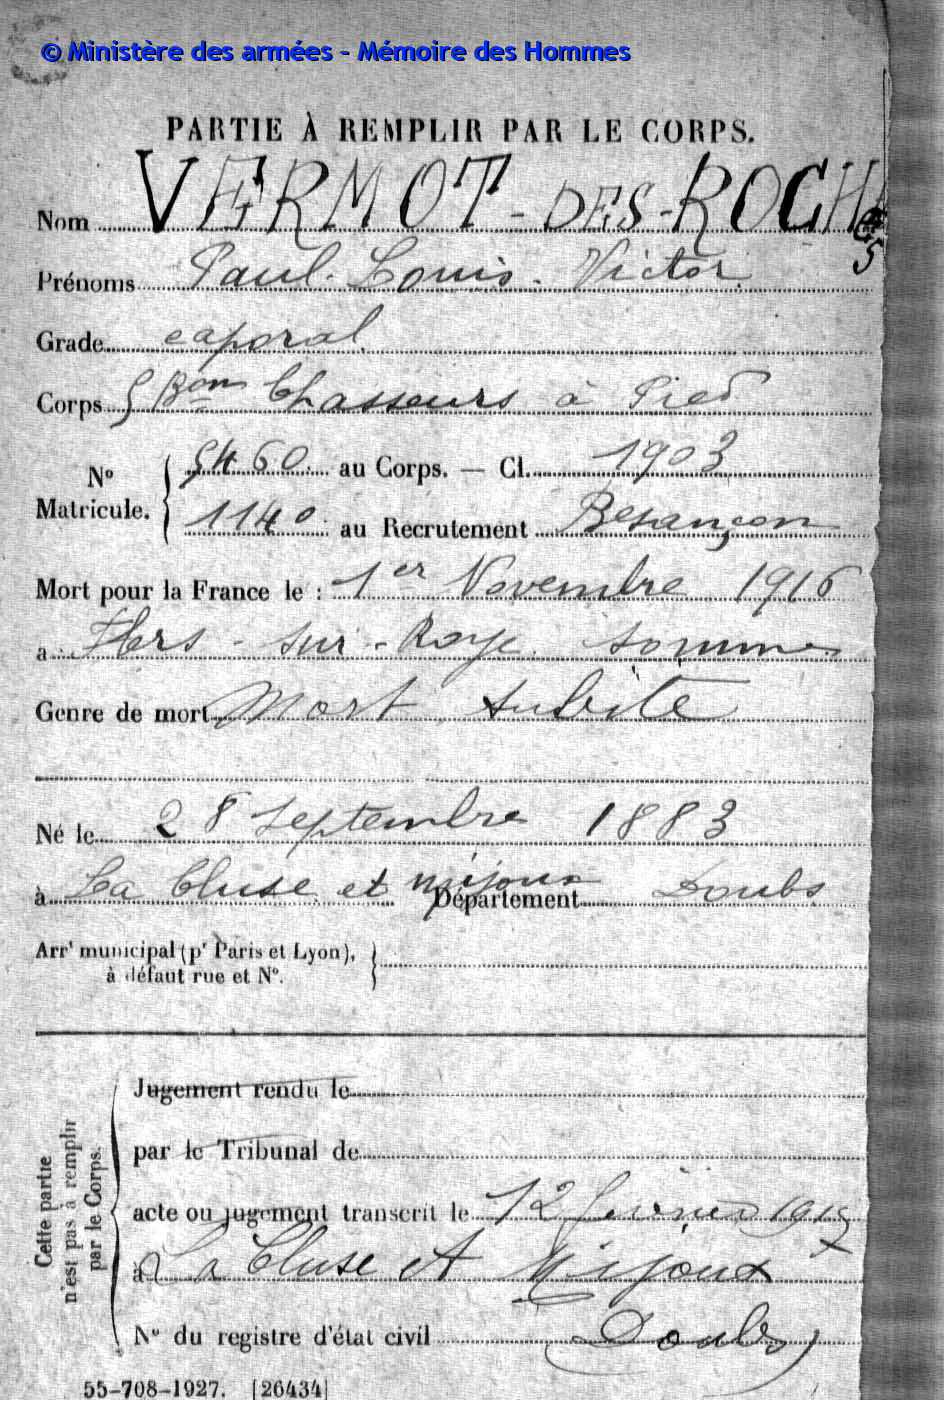 © Ministère des armées - Mémoire des Hommes
PARTIE À REMPLIR PAR LE CORPS.
Nom VERMOT-DES-ROCHES
Prénoms Paul-Louis-Victor
Grade caporal
Corps 5 Bon Chasseurs à Pied
N° Matricule. 5460 au Corps. — Cl. 1903
1140 au Recrutement Besançon
Mort pour la France le : 1er Novembre 1916
à Hers-sur-Roye Somme
Genre de mort Mort subite
Né le 28 septembre 1883
à La Cluse et mijoux Département Doubs
Arrt municipal (pr Paris et Lyon),
à défaut rue et N°.
Cette partie n'est pas à remplir par le Corps.
Jugement rendu le
par le Tribunal de
acte ou jugement transcrit le 12 février
à La Cluse et Mijoux
N° du registre d'état civil Doubs
55-708-1927. [26434]